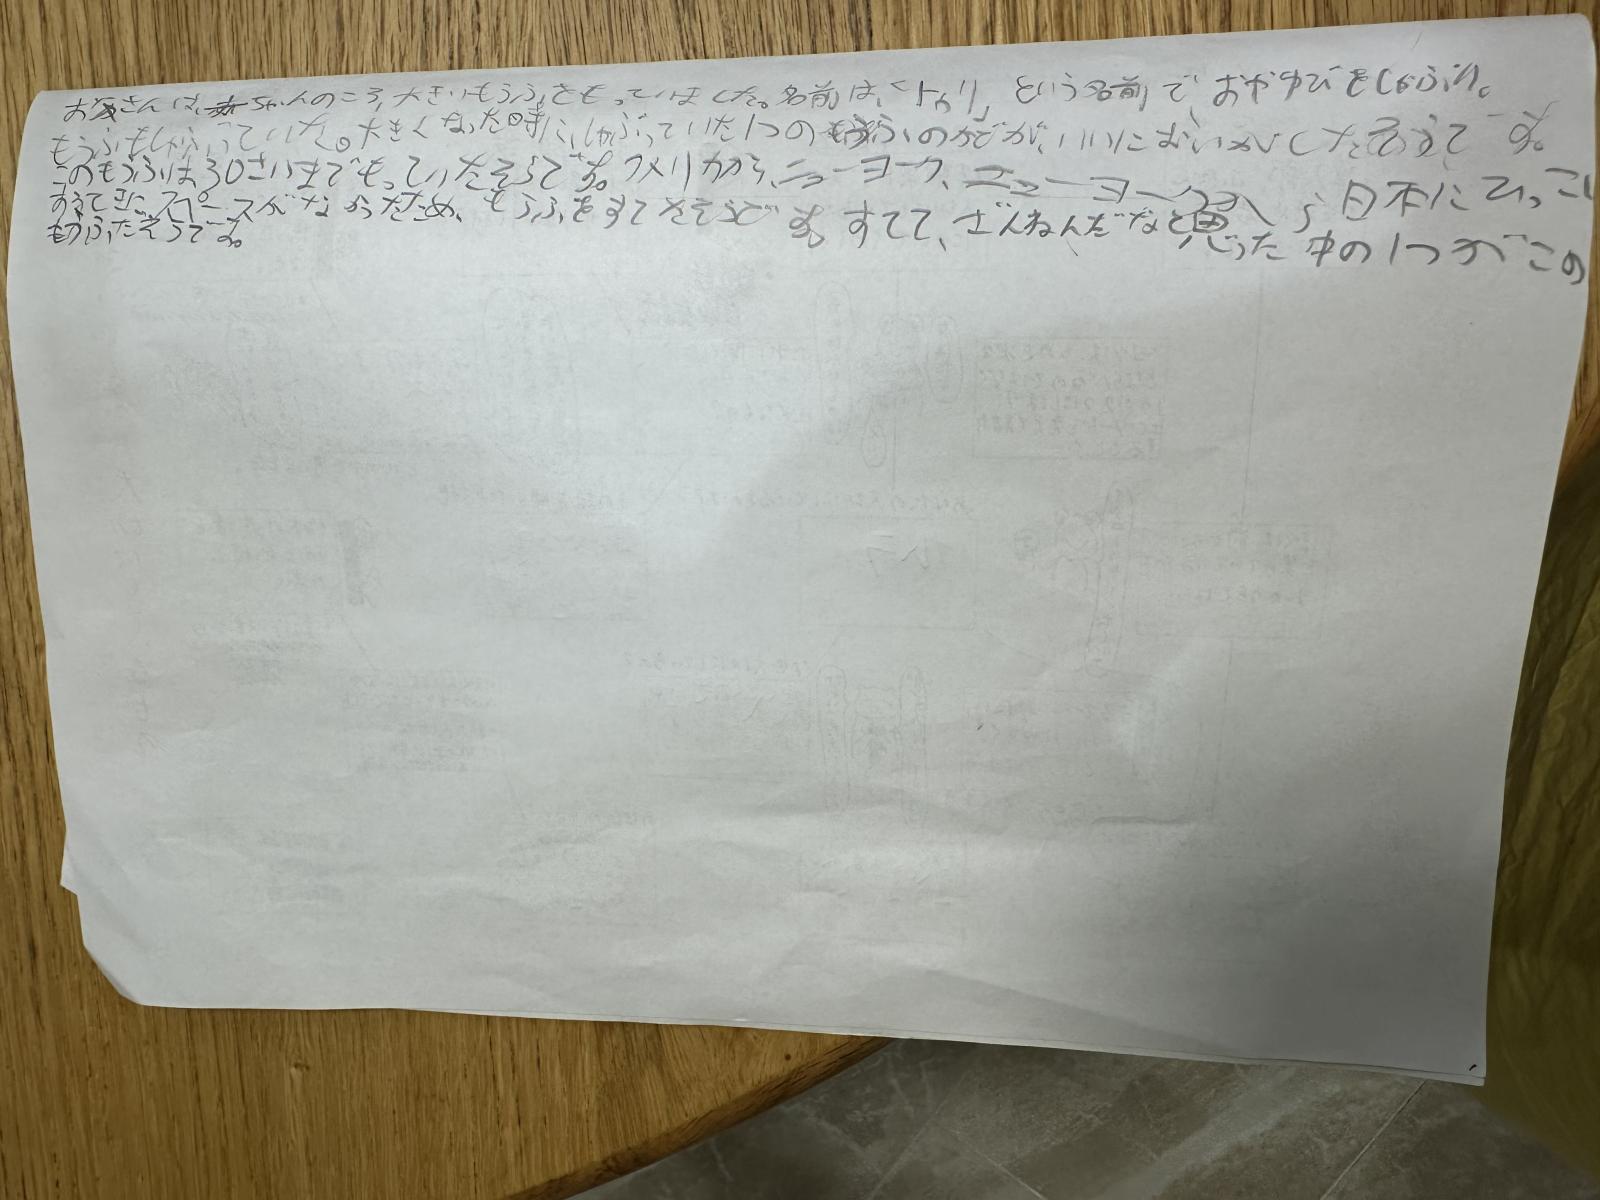 お父さんは、赤ちゃんのころ、大きいもうふをもっていました。名前は、「トゥリ」という名前で、おやゆびをしゃぶり。
もうふもしゃぶっていた。大きくなった時に、しゃぶっていた1つのもうふのかどが、いいにおいがしたそうです。
このもうふは30さいまでもっていたそうです。アメリカから、ニューヨーク、ニューヨークから日本にひっこし
するときに、スペースがなかったため、もうふをすてたそうです。すてて、ざんねんだなと思った中の1つがこの
もうふだそうです。